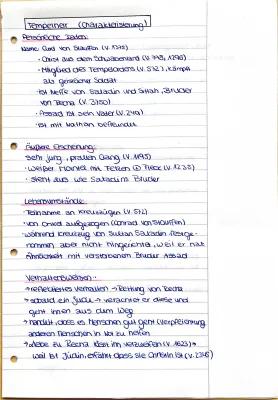 Tempelherr (Charakterisierung)
Persönliche Daten:
Name: Curd von Stauffen (V. 1375)
- Christ aus dem Schwabenland (V.
- Mitglied des Tempelordens (V. 572), kämpft
als geistlicher Soldat
- ist Neffe von Saladin und Sittah, Bruder
von Recha (V.
- Assad ist sein Vater (V.
- ist mit Nathan befreundet
Äußere Erscheinung:
- sehr jung, prallen Gang (V. 1195)
- weißer Mantel mit Fetzen
- sieht aus wie Saladins Bruder
Lebensumstände:
- Teilnahme an Kreuzzügen (V. 572)
- von Onkel aufgezogen (Conrad von Stauffen)
- während Kreuzzug von Sultan Saladin festge-
nommen aber nicht hingerichtet, weil er hat
Ähnlichkeit mit verstorbenen Bruder Assad
Verhaltensweisen:
→ reflektiertes Verhalten → Rettung von Recha
→ sobald ein Jude → verachtet er diese und
geht ihnen aus dem Weg
→ handelt, dass es Menschen gut geht (Verpflichtung
anderen Menschen in Not zu helfen
→ Liebe zu Recha lässt ihn verzweifeln (V. 1623) →
weil ist Jüdin, erfährt dass sie Christin ist (V. 2345)